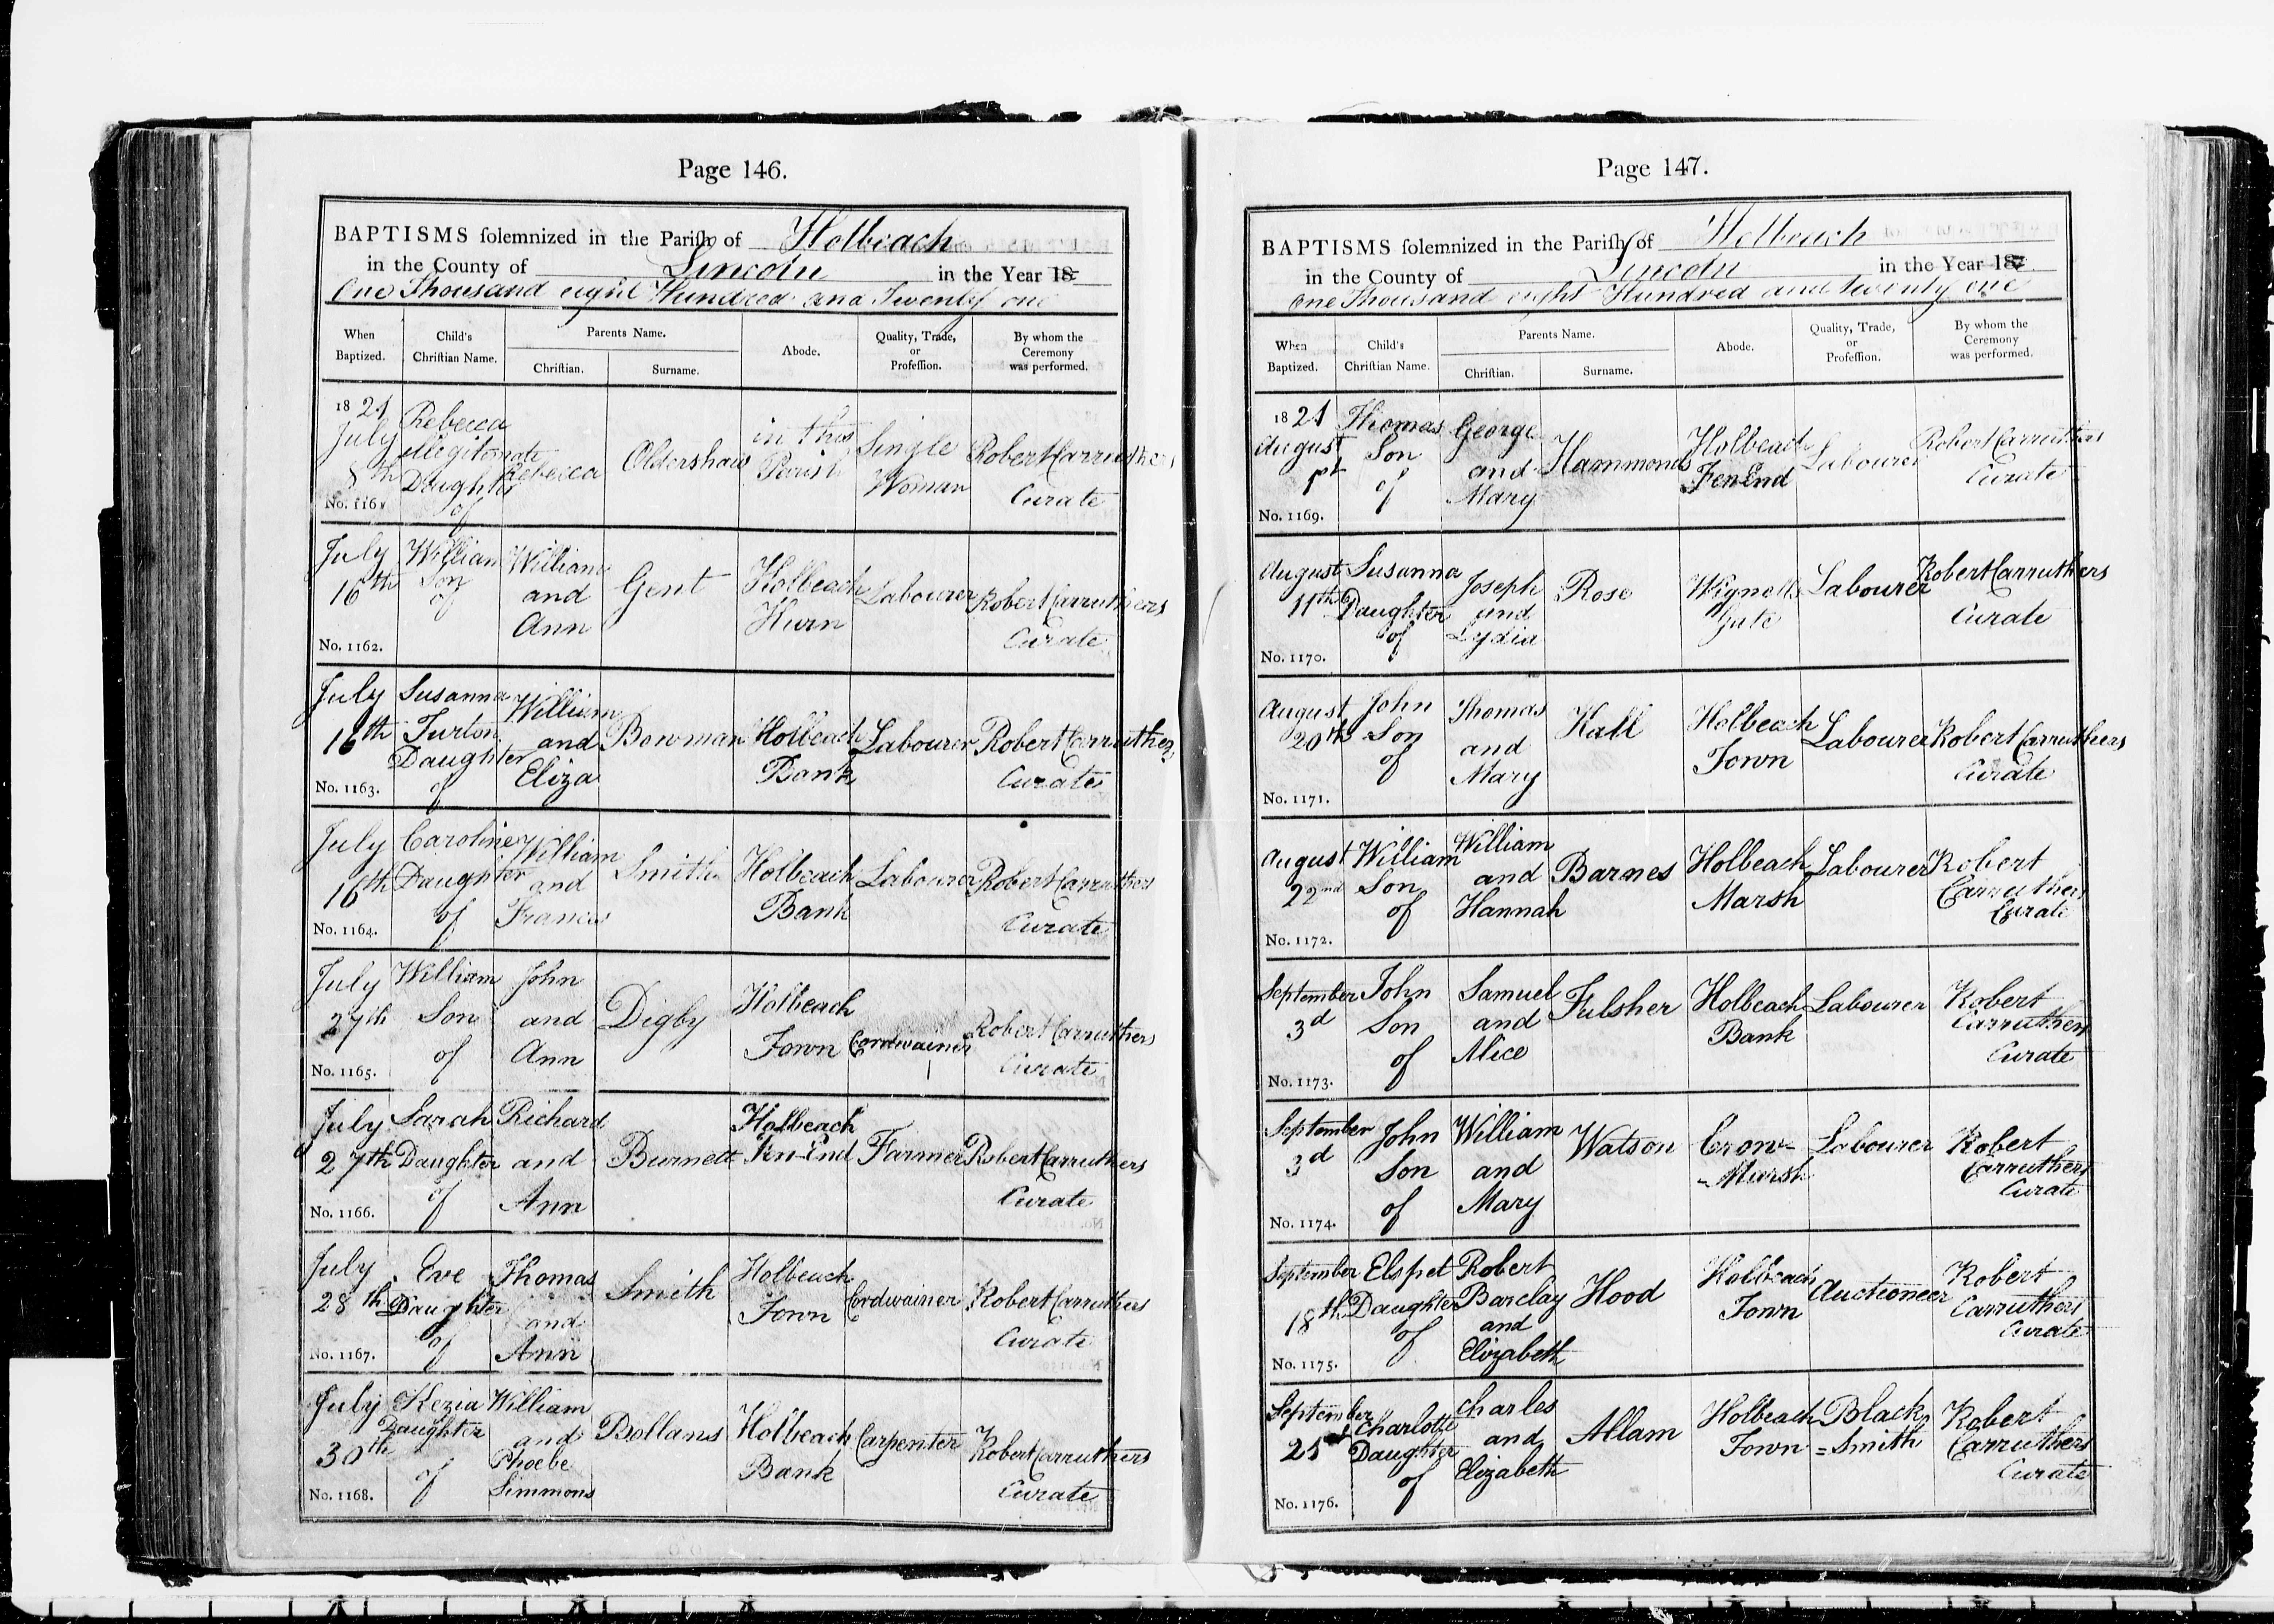 Page 146.
BAPTISMS ſolemnized in the Pariſh of Holbeach
in the County of Lincoln in the Year 18
One Thousand eight Hundred and Twenty one
When Baptized.
Child's Chriſtian Name.
Parents Name.
Chriſtian.
Surname.
Abode.
Quality, Trade, or Profeſſion.
By whom the Ceremony was performed.
1821 July 8th No. 1161
Rebecca illegitimate Daughter of
Rebecca
Oldershaw
in this Parish
Single Woman
Robert Carruthers Curate
July 16th No. 1162.
William Son of
William and Ann
Gent
Holbeach Hurn
Labourer
Robert Carruthers Curate
July 16th No. 1163.
Susanna Turton Daughter of
William and Eliza
Bowman
Holbeach Bank
Labourer
Robert Carruthers Curate
July 16th No. 1164.
Caroline Daughter of
William and Frances
Smith
Holbeach Bank
Labourer
Robert Carruthers Curate
July 27th No. 1165.
William Son of
John and Ann
Digby
Holbeach Town
Cordwainer
Robert Carruthers Curate
July 27th No. 1166.
Sarah Daughter of
Richard and Ann
Burnett
Holbeach Fen-End
Farmer
Robert Carruthers Curate
July 28th No. 1167.
Eve Daughter of
Thomas and Ann
Smith
Holbeach Town
Cordwainer
Robert Carruthers Curate
July 30th No. 1168.
Kezia Daughter of
William and Phoebe Simmons
Bollans
Holbeach Bank
Carpenter
Robert Carruthers Curate
Page 147.
BAPTISMS ſolemnized in the Pariſh of Holbeach
in the County of Lincoln in the Year 18
One Thousand eight Hundred and twenty one
When Baptized.
Child's Chriſtian Name.
Parents Name.
Chriſtian.
Surname.
Abode.
Quality, Trade, or Profeſſion.
By whom the Ceremony was performed.
1821 August 1st No. 1169.
Thomas Son of
George and Mary
Hammond
Holbeach Fen End
Labourer
Robert Carruthers Curate
August 11th No. 1170.
Susanna Daughter of
Joseph and Lydia
Rose
Wignells Gate
Labourer
Robert Carruthers Curate
August 20th No. 1171.
John Son of
Thomas and Mary
Hall
Holbeach Town
Labourer
Robert Carruthers Curate
August 22nd No. 1172.
William Son of
William and Hannah
Barnes
Holbeach Marsh
Labourer
Robert Carruthers Curate
September 3d No. 1173.
John Son of
Samuel and Alice
Fulsher
Holbeach Bank
Labourer
Robert Carruthers Curate
September 3d No. 1174.
John Son of
William and Mary
Watson
Crow-Marsh
Labourer
Robert Carruthers Curate
September 18th No. 1175.
Elspet Daughter of
Robert Barclay and Elizabeth
Hood
Holbeach Town
Auctioneer
Robert Carruthers Curate
September 21 No. 1176.
Charlotte Daughter of
Charles and Elizabeth
Allam
Holbeach Town
Black=Smith
Robert Carruthers Curate